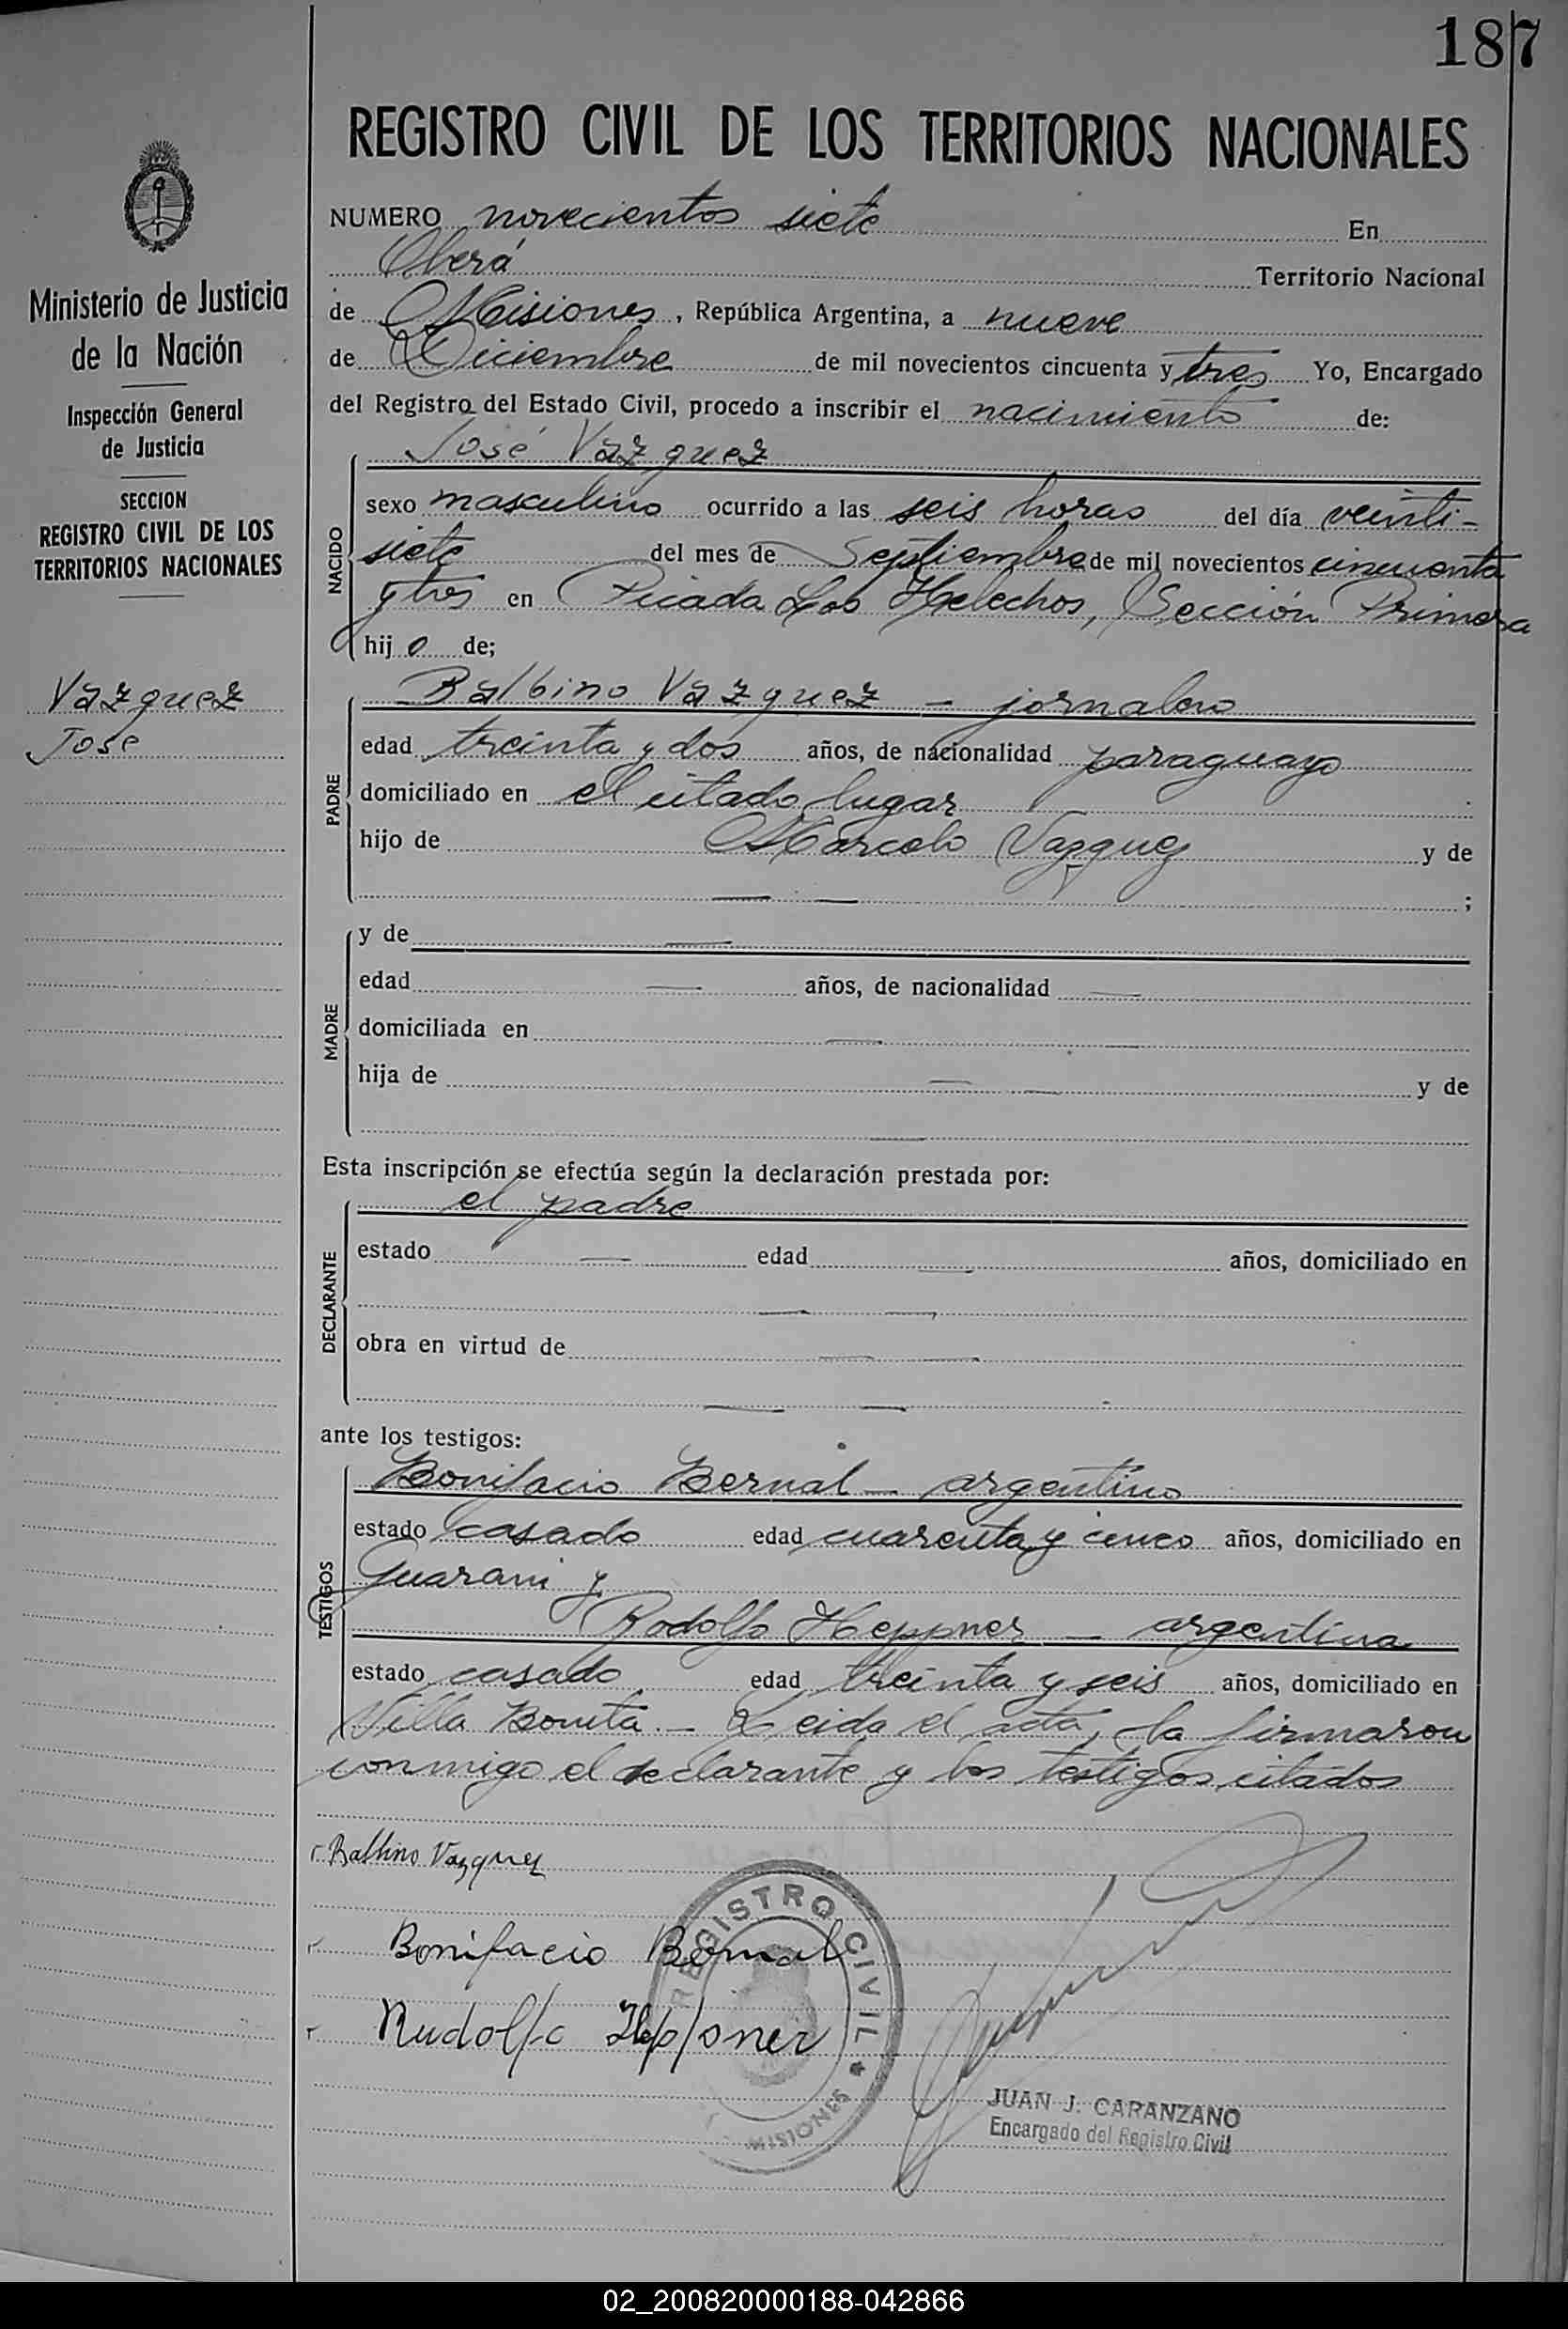 187
REGISTRO CIVIL DE LOS TERRITORIOS NACIONALES
Ministerio de Justicia
de la Nación
Inspección General
de Justicia
SECCION
REGISTRO CIVIL DE LOS
TERRITORIOS NACIONALES
Vazquez
Jose
NUMERO novecientos siete En
Oberá Territorio Nacional
de Misiones, República Argentina, a nueve
de Diciembre de mil novecientos cincuenta y tres Yo, Encargado
del Registro del Estado Civil, procedo a inscribir el nacimiento de:
José Vazquez
NACIDO
sexo masculino ocurrido a las seis horas del día veinti-
siete del mes de Septiembre de mil novecientos cincuenta
y tres en Picada Los Helechos, Sección Primera
hijo de;
Balbino Vazquez - jornalero
PADRE
edad treinta y dos años, de nacionalidad paraguayo
domiciliado en el citado lugar
hijo de Marcelo Vazquez y de
— — ;
MADRE
y de —
edad — años, de nacionalidad —
domiciliada en — —
hija de — — y de
—
Esta inscripción se efectúa según la declaración prestada por:
el padre
DECLARANTE
estado — edad — años, domiciliado en
— —
obra en virtud de — —
— —
ante los testigos:
Bonifacio Bernal - argentino
TESTIGOS
estado casado edad cuarenta y cinco años, domiciliado en
Guarani y
Rodolfo Heppner - argentina
estado casado edad treinta y seis años, domiciliado en
Villa Bonita. - Leida el acta, la firmaron
conmigo el declarante y los testigos citados
Balbino Vazquez
Bonifacio Bernal
Rudolfo Heppner
REGISTRO CIVIL
MISIONES
JUAN J. CARANZANO
Encargado del Registro Civil
02_200820000188-042866